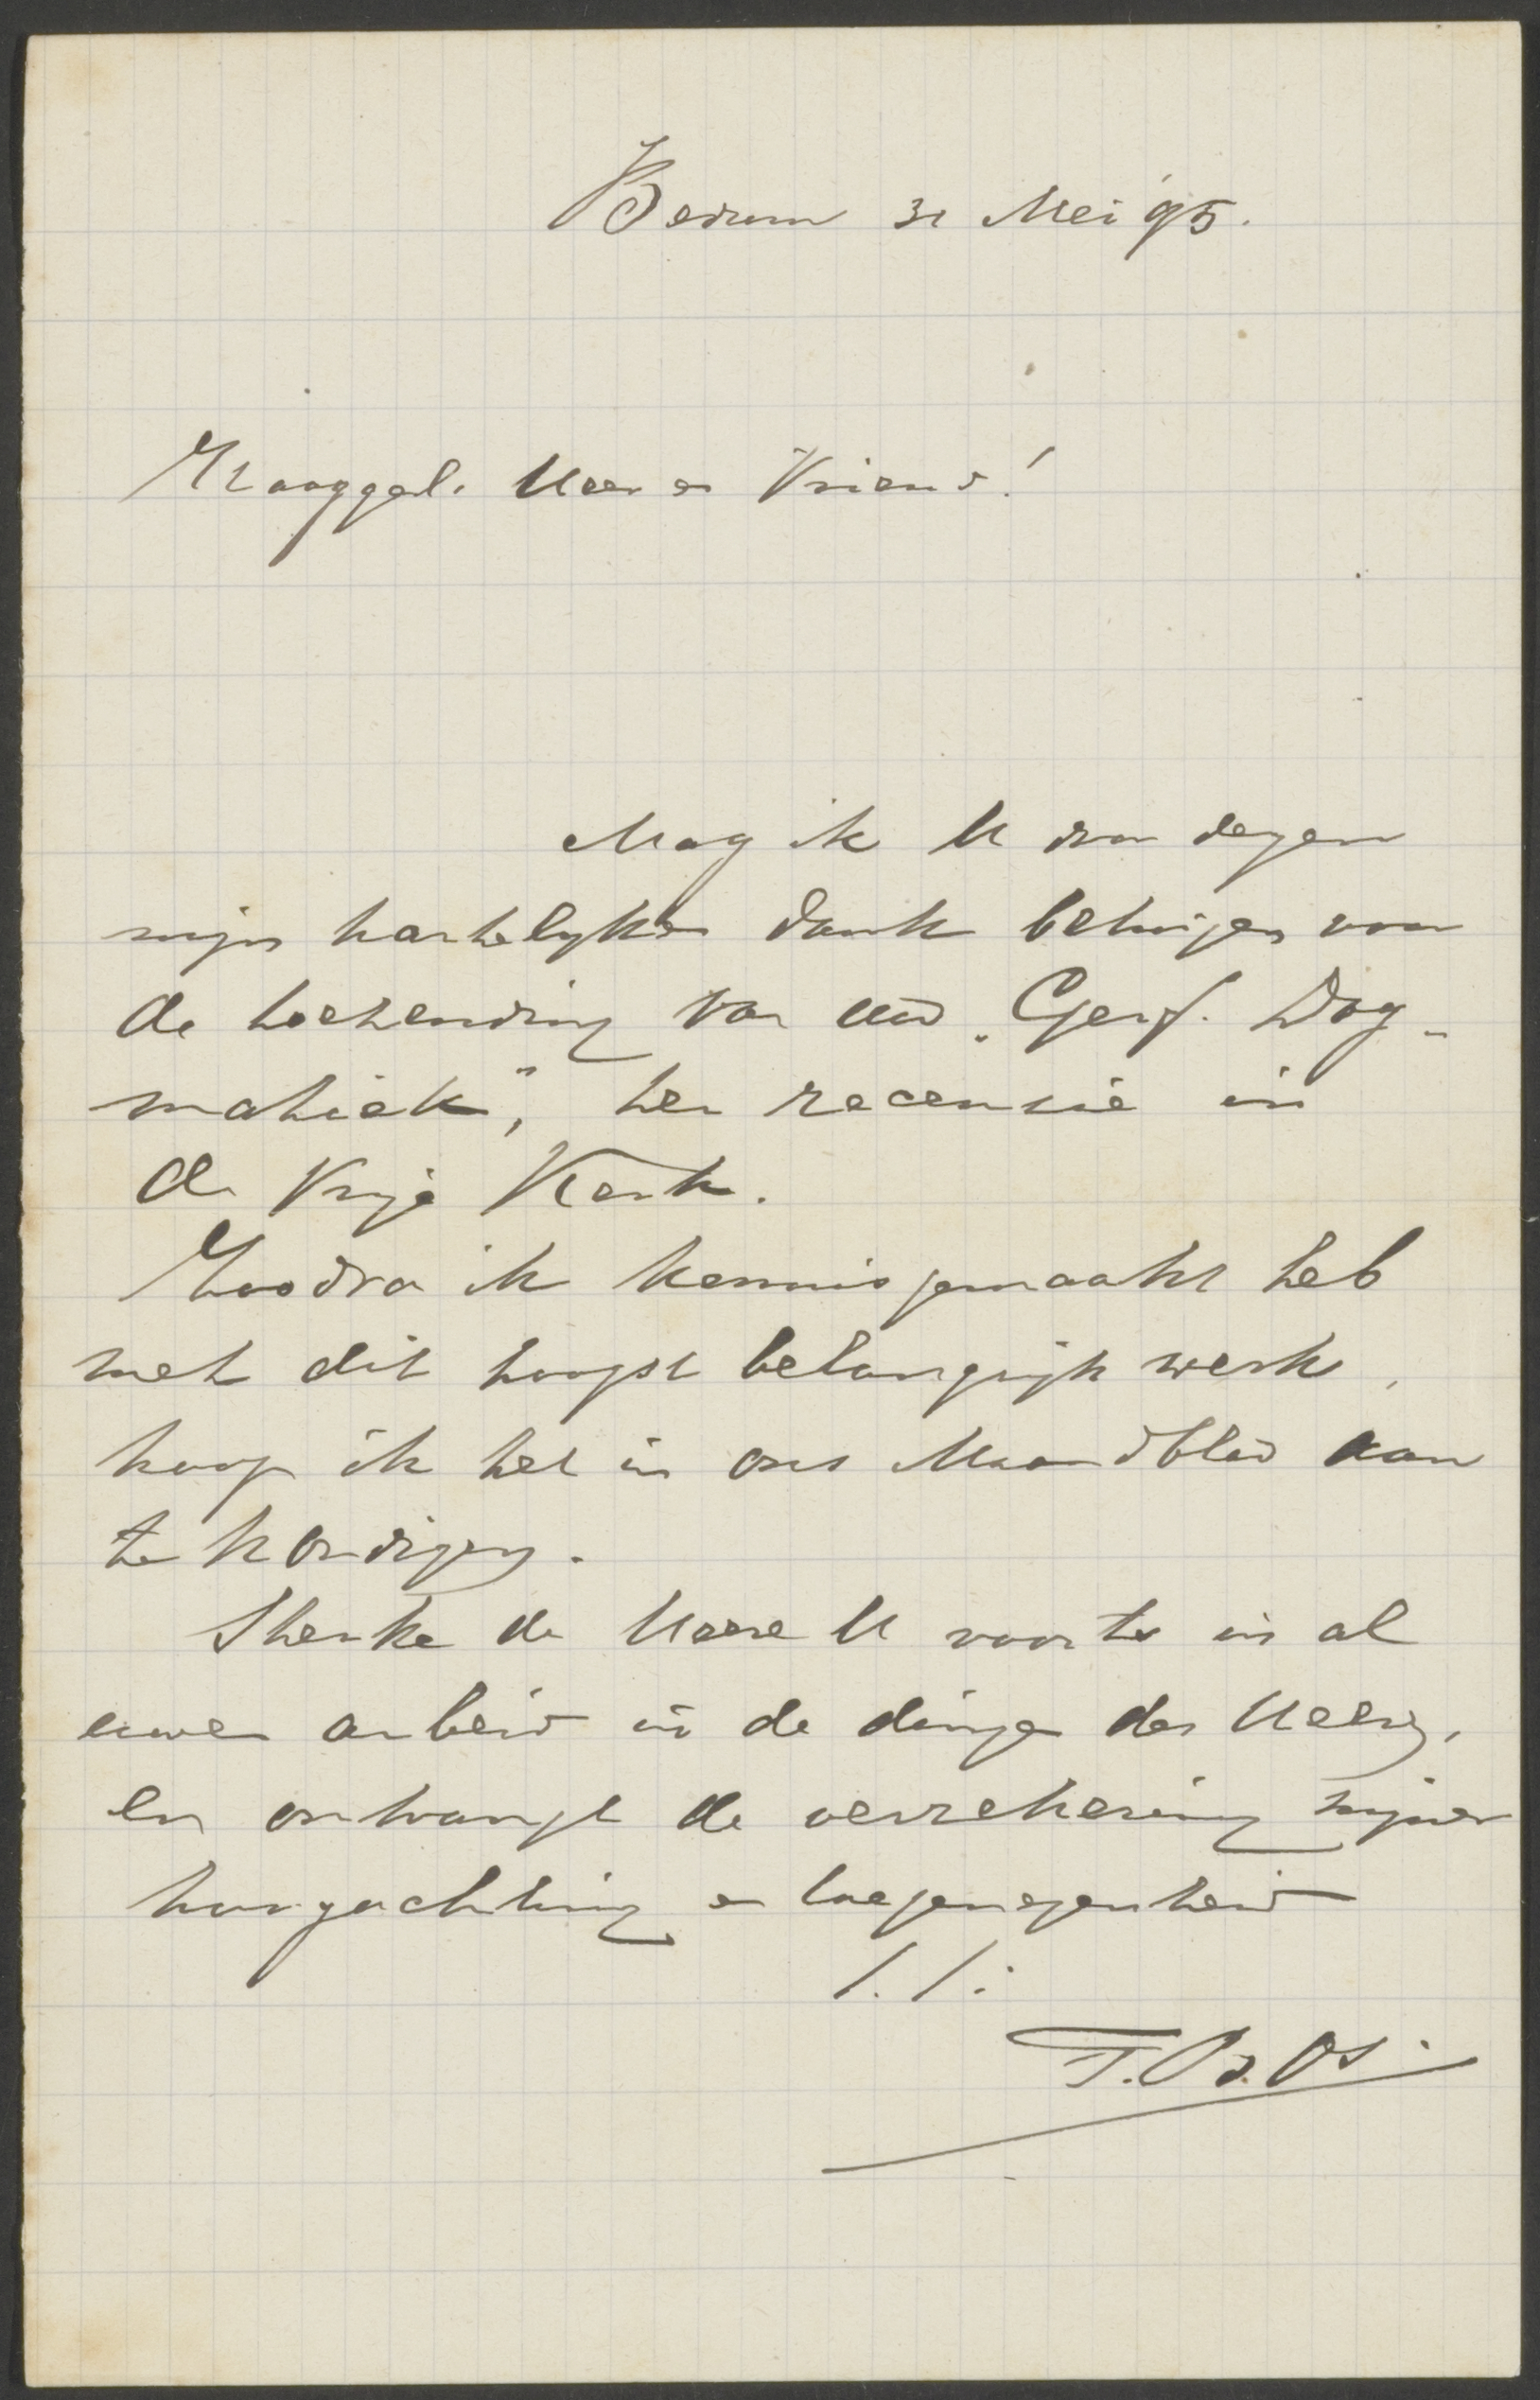 Bedum 31 Mei '95.
Hooggel. Heer en Vriend!
Mag ik U door dezen
mijn hartelyken dank betuigen voor
de toezending van uw „Geref. Dog-
matiek", ter recensie in
de Vrije Kerk.
Zoodra ik kennis gemaakt heb
met dit hoogst belangrijk werk,
hoop ik het in ons Maandblad aan
te kondigen.
Sterke de Heere U voorts in al
uwen arbeid in de dingen des Heeren,
en ontvangt de verzekering mijner
hoogachting en toegenegenheid
t. t.
T. Bos.